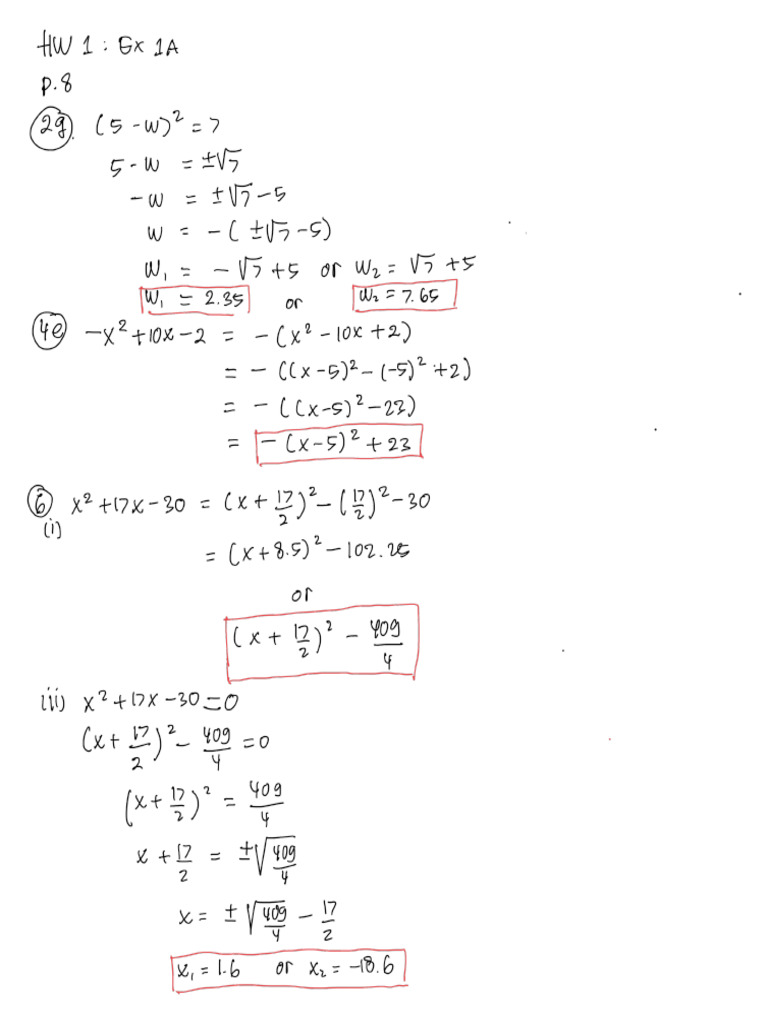 HW 1 : Ex 1A
p.8
2g. (5 - w)² = 7
5 - w = ±√7
-w = ±√7 - 5
w = -( ±√7 - 5)
W₁ = -√7 + 5 or W₂ = √7 + 5
W₁ = 2.35 or W₂ = 7.65
4e -x² + 10x - 2 = -(x² - 10x + 2)
= -((x - 5)² - (-5)² + 2)
= -((x - 5)² - 23)
= -(x - 5)² + 23
6 x² + 17x - 30 = (x + 17/2)² - (17/2)² - 30
(i)
= (x + 8.5)² - 102.25
or
(x + 17/2)² - 409/4
iii) x² + 17x - 30 = 0
(x + 17/2)² - 409/4 = 0
(x + 17/2)² = 409/4
x + 17/2 = ±√409/4
x = ±√409/4 - 17/2
x₁ = 1.6 or x₂ = -18.6